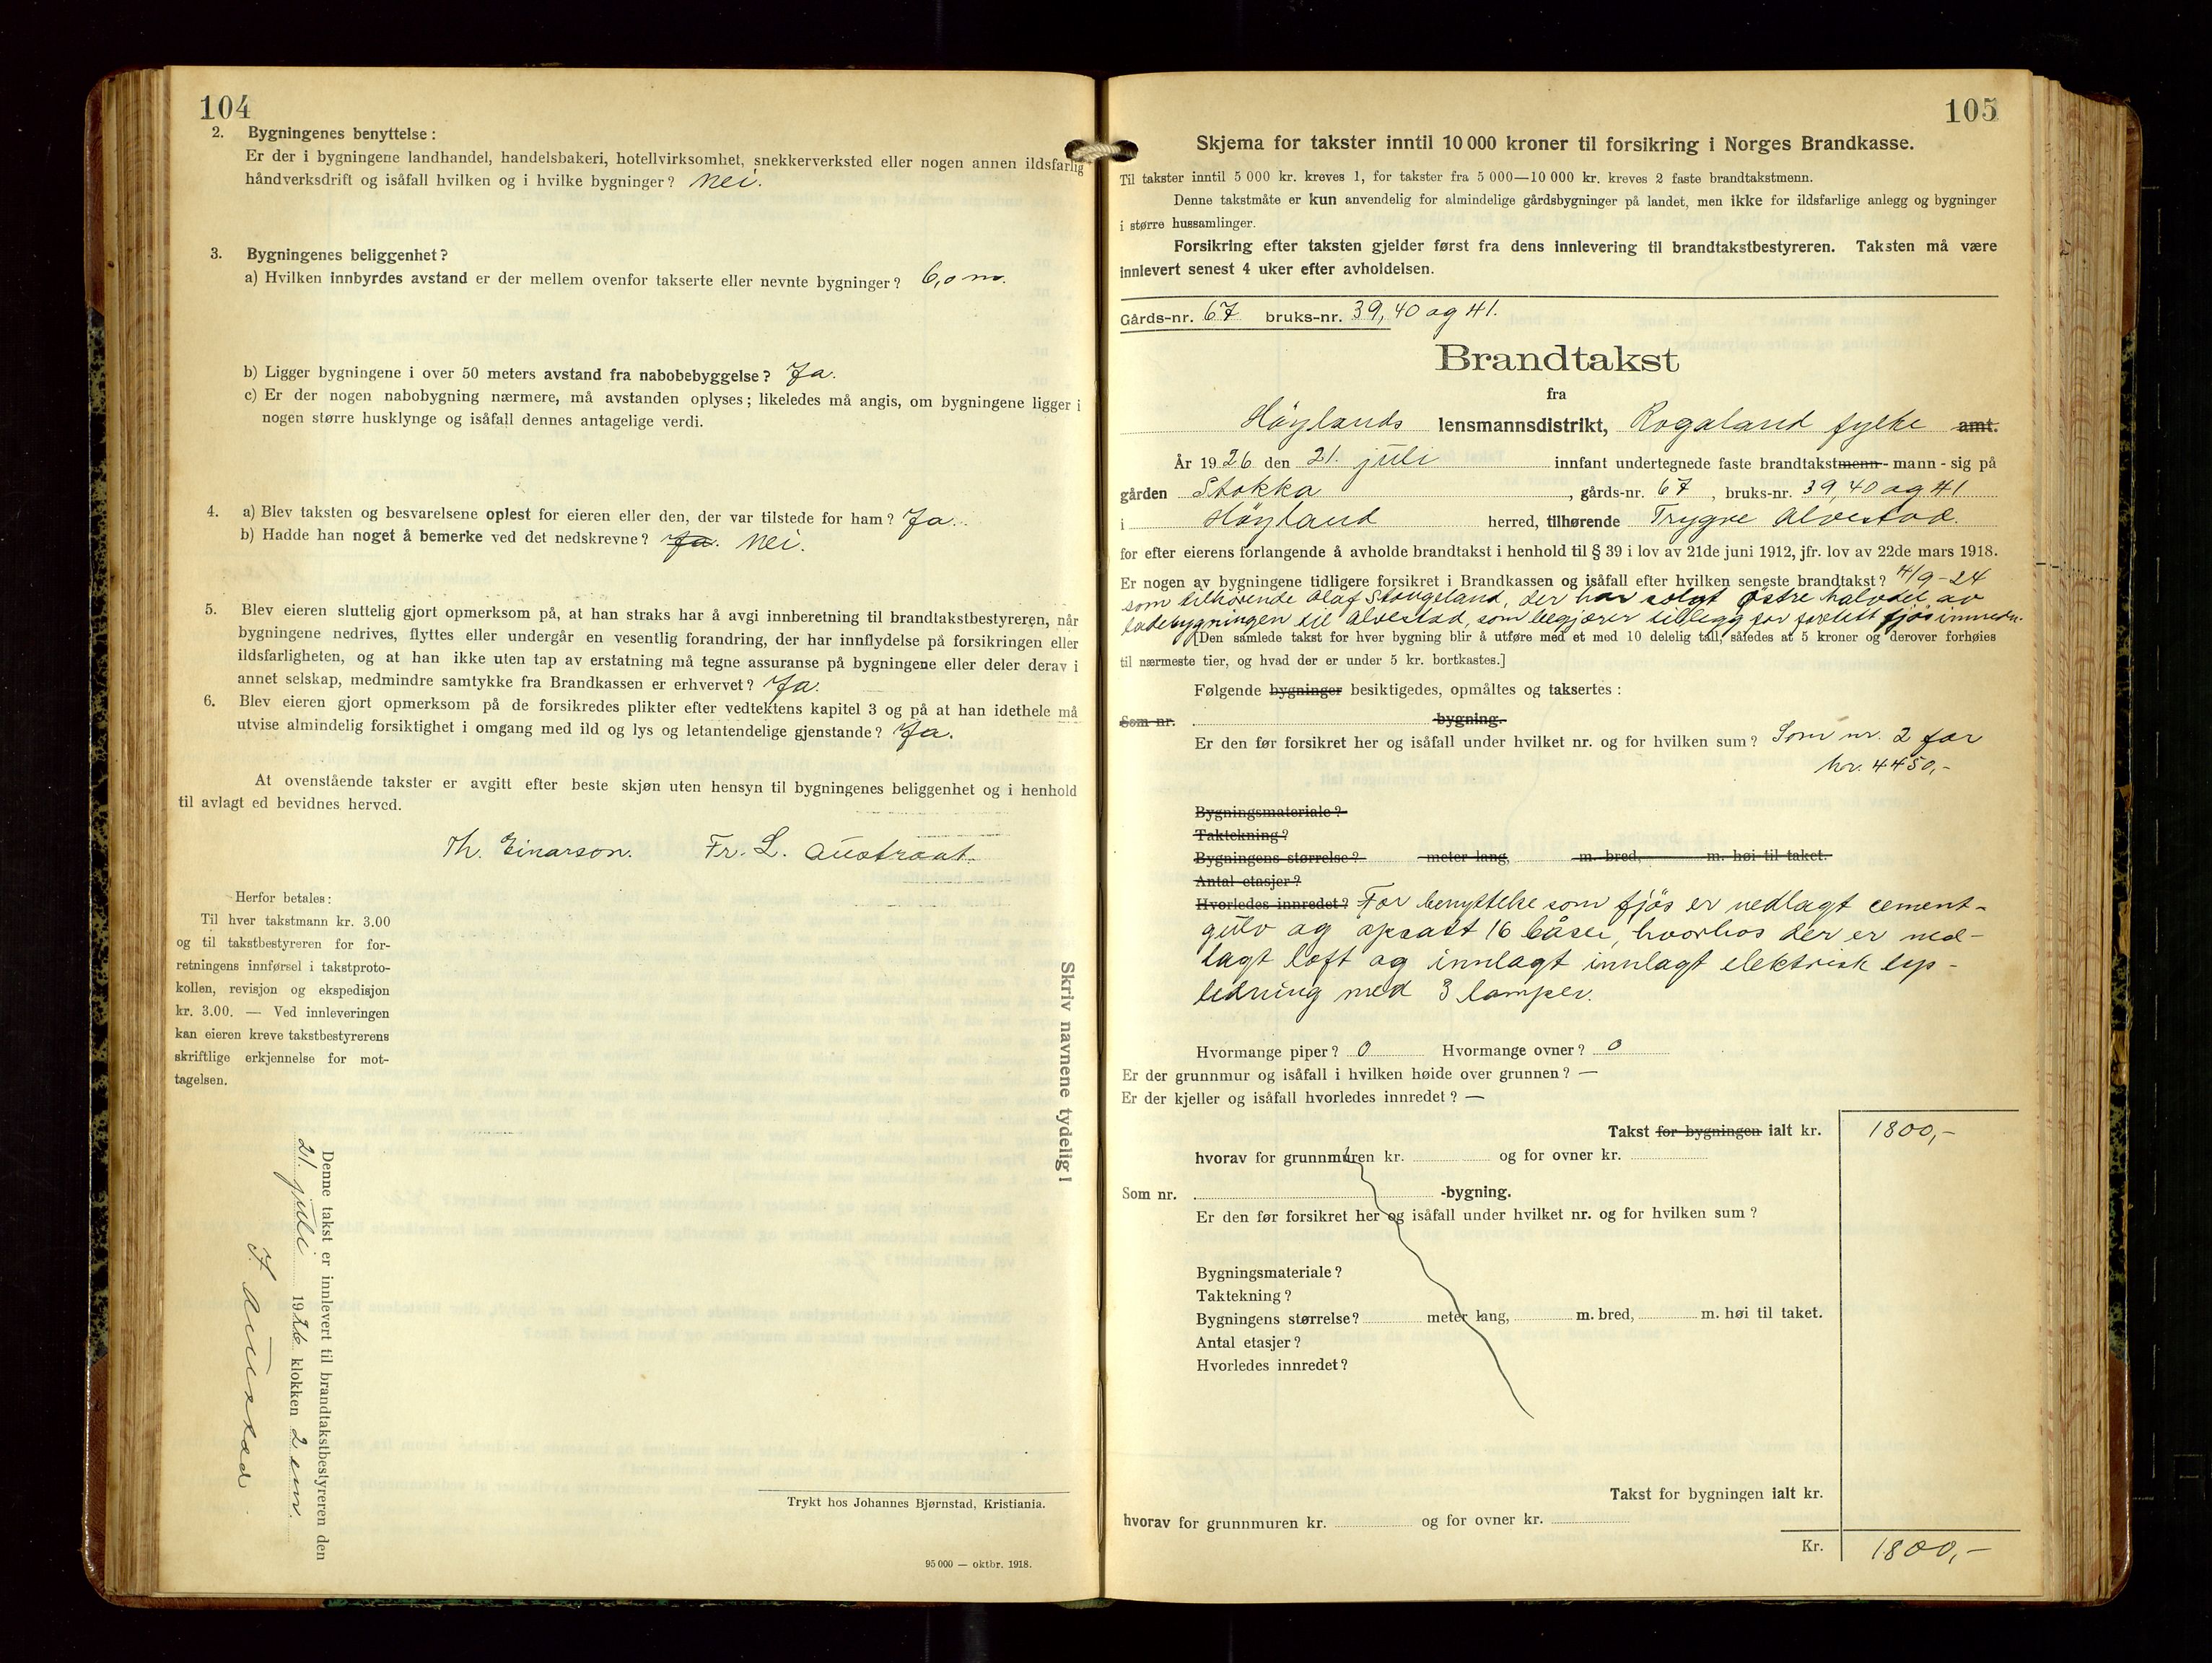 104
2. Bygningenes benyttelse:
Er der i bygningene landhandel, handelsbakeri, hotellvirksomhet, snekkerverksted eller nogen annen ildsfarlig
håndverksdrift og isåfall hvilken og i hvilke bygninger? Nei.
3. Bygningenes beliggenhet?
a) Hvilken innbyrdes avstand er der mellem ovenfor takserte eller nevnte bygninger? 6,0 m.
b) Ligger bygningene i over 50 meters avstand fra nabobebyggelse? Ja.
c) Er der nogen nabobygning nærmere, må avstanden oplyses; likeledes må angis, om bygningene ligger i
nogen større husklynge og isåfall dennes antagelige verdi.
4. a) Blev taksten og besvarelsene oplest for eieren eller den, der var tilstede for ham? Ja.
b) Hadde han noget å bemerke ved det nedskrevne? Ja. Nei.
5. Blev eieren sluttelig gjort opmerksom på, at han straks har å avgi innberetning til brandtakstbestyreren, når
bygningene nedrives, flyttes eller undergår en vesentlig forandring, der har innflydelse på forsikringen eller
ildsfarligheten, og at han ikke uten tap av erstatning må tegne assuranse på bygningene eller deler derav i
annet selskap, medmindre samtykke fra Brandkassen er erhvervet? Ja.
6. Blev eieren gjort opmerksom på de forsikredes plikter efter vedtektens kapitel 3 og på at han idethele må
utvise almindelig forsiktighet i omgang med ild og lys og letantendelige gjenstande? Ja.
At ovenstående takster er avgitt efter beste skjøn uten hensyn til bygningenes beliggenhet og i henhold
til avlagt ed bevidnes herved.
Th. Einarson. Fr. L. Austraat.
Herfor betales:
Til hver takstmann kr. 3.00
og til takstbestyreren for for-
retningens innførsel i takstproto-
kollen, revisjon og ekspedisjon
kr. 3.00. — Ved innleveringen
kan eieren kreve takstbestyrerens
skriftlige erkjennelse for mot-
tagelsen.
Skriv navnene tydelig!
Denne takst er innlevert til brandtakstbestyreren den
21. juli 1926 klokken 2 em.
Trykt hos Johannes Bjørnstad, Kristiania.
95 000 — oktbr. 1918.
105
Skjema for takster inntil 10 000 kroner til forsikring i Norges Brandkasse.
Til takster inntil 5 000 kr. kreves 1, for takster fra 5 000—10 000 kr. kreves 2 faste brandtakstmenn.
Denne takstmåte er kun anvendelig for almindelige gårdsbygninger på landet, men ikke for ildsfarlige anlegg og bygninger
i større hussamlinger.
Forsikring efter taksten gjelder først fra dens innlevering til brandtakstbestyreren. Taksten må være
innlevert senest 4 uker efter avholdelsen.
Gårds-nr. 67 bruks-nr. 39, 40 og 41.
Brandtakst
fra
Høylands lensmannsdistrikt, Rogaland fylke amt.
År 1926 den 21. juli innfant undertegnede faste brandtakstmenn - mann - sig på
gården Stokka, gårds-nr. 67, bruks-nr. 39, 40 og 41
i Høyland herred, tilhørende Trygve Alvestad.
for efter eierens forlangende å avholde brandtakst i henhold til § 39 i lov av 21de juni 1912, jfr. lov av 22de mars 1918.
Er nogen av bygningene tidligere forsikret i Brandkassen og isåfall efter hvilken seneste brandtakst? 4/9-24
som tilhørende Olaf Stangeland, der har solgt østre halvdel av
ladebygningen til Alvestad, som begjærer tillegg for foretatt fjøsinnredn.
[Den samlede takst for hver bygning blir å utføre med et med 10 delelig tall, således at 5 kroner og derover forhøies
til nærmeste tier, og hvad der er under 5 kr. bortkastes.]
Følgende bygninger besiktigedes, opmåltes og taksertes:
Som nr. bygning.
Er den før forsikret her og isåfall under hvilket nr. og for hvilken sum? Som nr. 2 for
kr. 4450,-
Bygningsmateriale?
Taktekning?
Bygningens størrelse? meter lang, m. bred, m. høi til taket.
Antal etasjer?
Hvorledes innredet? For benyttelse som fjøs er nedlagt cement-
gulv og opsatt 16 båser, hvorhos der er ned-
lagt loft og innlagt innlagt elektrisk lys-
ledning med 3 lamper.
Hvormange piper? 0 Hvormange ovner? 0
Er der grunnmur og isåfall i hvilken høide over grunnen? —
Er der kjeller og isåfall hvorledes innredet? —
Takst for bygningen ialt kr. 1800,-
hvorav for grunnmuren kr. og for ovner kr.
Som nr. -bygning.
Er den før forsikret her og isåfall under hvilket nr. og for hvilken sum?
Bygningsmateriale?
Taktekning?
Bygningens størrelse? meter lang, m. bred, m. høi til taket.
Antal etasjer?
Hvorledes innredet?
Takst for bygningen ialt kr.
hvorav for grunnmuren kr. og for ovner kr.
Kr. 1800,-